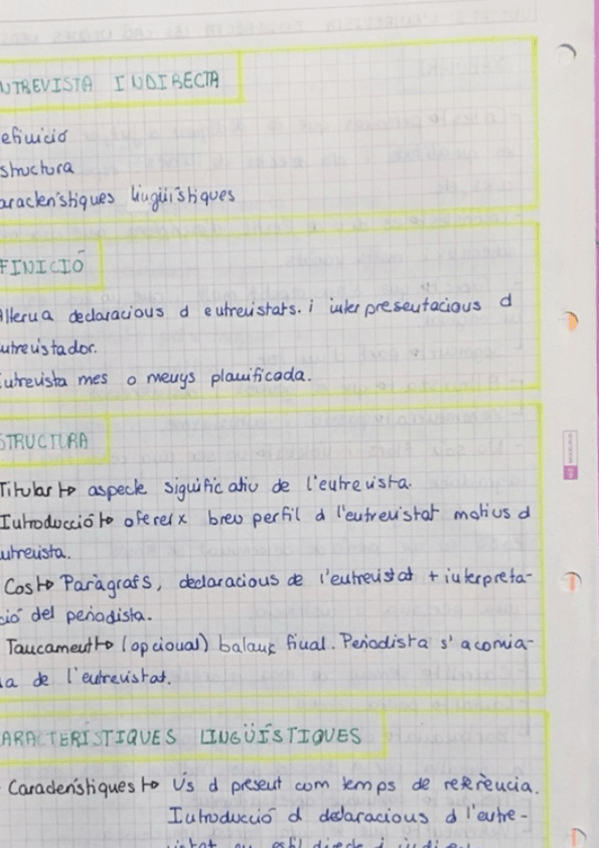 NTREVISTA INDIRECTA
efinició
structura
aracterístiques lingüístiques
FINICIÓ
Alterna declaracions d entrevistats. i inter presentacions d
ntrevistador.
ntrevista mes o menys planificada.
STRUCTURA
Titular → aspecte significatiu de l'entrevista.
Introducció → ofereix breu perfil d l'entrevistat motius d
ntrevista.
Cos → Paràgrafs, declaracions de l'entrevistat + interpreta-
ció del periodista.
Tancament → (opcional) balanç final. Periodista s'acomia-
a de l'entrevistat.
ARACTERÍSTIQUES LINGÜÍSTIQUES
Característiques → Ús d present com temps de referència.
Introducció d declaracions d l'entre-